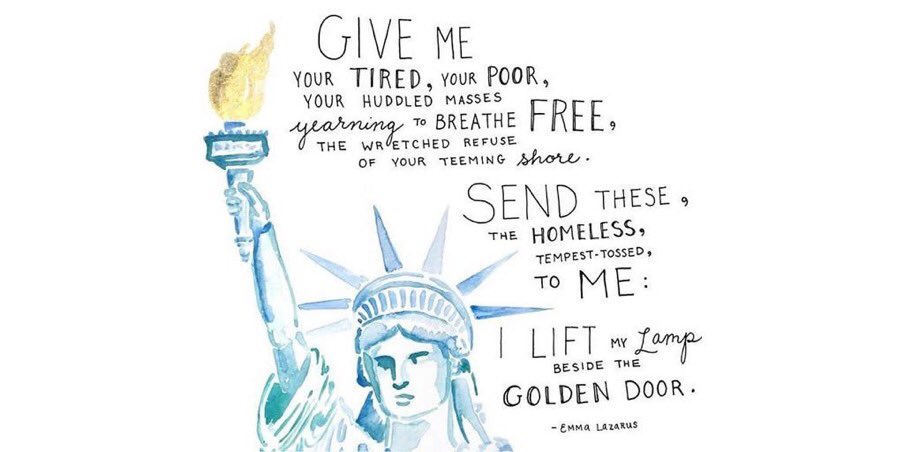 GIVE ME
YOUR TIRED, YOUR POOR,
YOUR HUDDLED MASSES
yearning TO BREATHE FREE,
THE WRETCHED REFUSE
OF YOUR TEEMING shore.
SEND THESE,
THE HOMELESS,
TEMPEST-TOSSED,
TO ME:
I LIFT MY Lamp
BESIDE THE
GOLDEN DOOR.
- EMMA LAZARUS